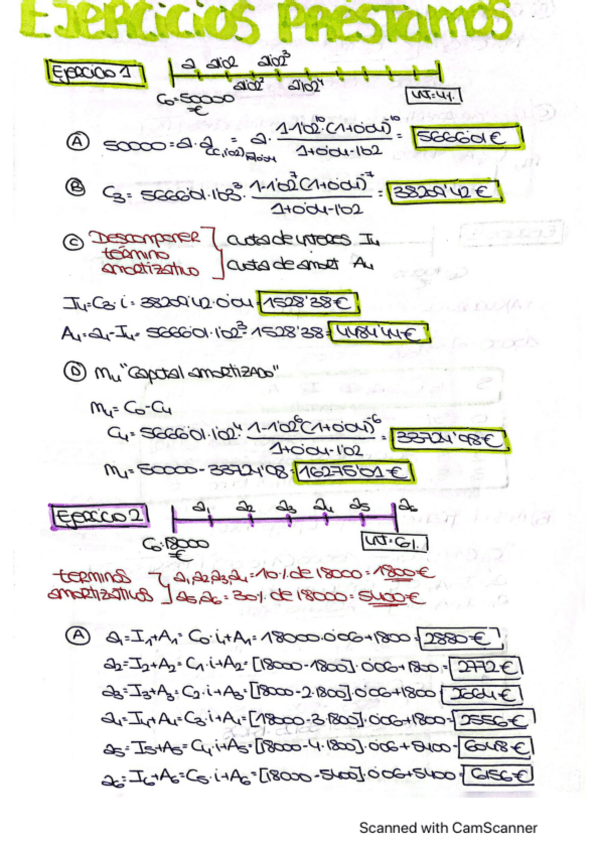 EJERCICIOS PRÉSTAMOS
Ejercicio 1
a a102 a102² a102³ a102⁴
C₀=50000 €
(A) 50000=a·a = a· 1-1'02¹⁰·(1+0'04)⁻¹⁰ / 1+0'04-1'02 = 5666'01€
(B) C₃= 5666'01·1'03³· 1-1'02⁷(1+0'04)⁻⁷ / 1+0'04-1'02 = 38209'42€
(C) Descomponer término amortizativo
cuota de interes I₄
cuota de amort A₄
I₄=C₃·i= 38209'42·0'04= 1528'38€
A₄=a₄-I₄= 5666'01·1'02³-1528'38= 4484'44€
(D) M₄ "Capital amortizado"
M₄=C₀-C₄
C₄= 5666'01·1'02⁴· 1-1'02⁶(1+0'04)⁻⁶ / 1+0'04-1'02 = 33724'98€
M₄=50000-33724'98= 16275'01€
Ejercicio 2
a₁ a₂ a₃ a₄ a₅ a₆
C₀=18000 €
terminos amortizativos
a₁,a₂,a₃,a₄=10% de 18000=1800€
a₅,a₆=30% de 18000=5400€
(A) a₁=I₁+A₁=C₀·i+A₁=18000·0'06+1800= 2880€
a₂=I₂+A₂=C₁·i+A₂=[18000-1800]·0'06+1800= 2772€
a₃=I₃+A₃=C₂·i+A₃=[18000-2·1800]·0'06+1800= 2664€
a₄=I₄+A₄=C₃·i+A₄=[18000-3·1800]·0'06+1800= 2556€
a₅=I₅+A₅=C₄·i+A₅=[18000-4·1800]·0'06+5400= 6048€
a₆=I₆+A₆=C₅·i+A₆=[18000-5400]·0'06+5400= 6156€
Scanned with CamScanner